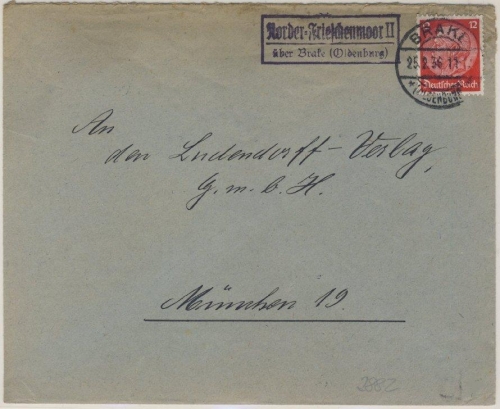 Norder-Frieschenmoor II
über Brake (Oldenburg)
12
BRAKE
25.2.36.11
(OLDENBURG)
Deutsches Reich
An
den Ludendorff-Verlag,
G. m. b. H.
München 19.
3882